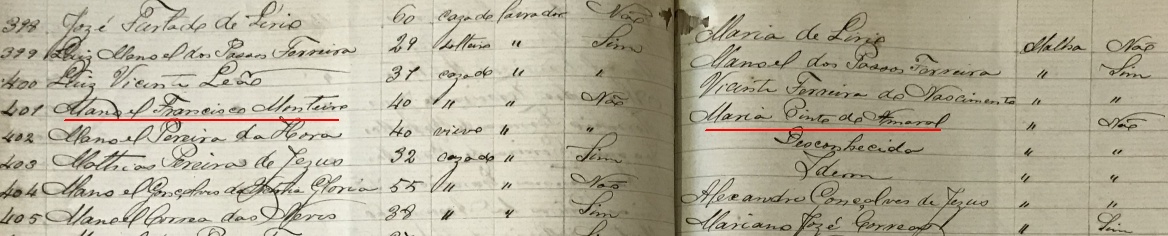 398 Jozé Furtado de Lirio 60 cazado Lavrador Não Maria de Lirio Malha Não
399 Luiz Manoel dos Passos Ferreira 29 solteiro " Sim Manoel dos Passos Ferreira " Sim
400 Luiz Vicente Leão 31 cazado " " Vicente Ferreira do Nascimento " "
401 Manoel Francisco Monteiro 40 " " Não Maria Pinto do Amaral " Não
402 Manoel Pereira da Hora 40 viuvo " " Desconhecida " "
403 Mathias Pereira de Jezus 32 cazado " Sim Idem " "
404 Manoel Gonçalves da Gloria 55 " " Não Alexandre Gonçalves de Jezus " "
405 Manoel Correa das Neves 38 " " Sim Mariano Jozé Correa " Sim